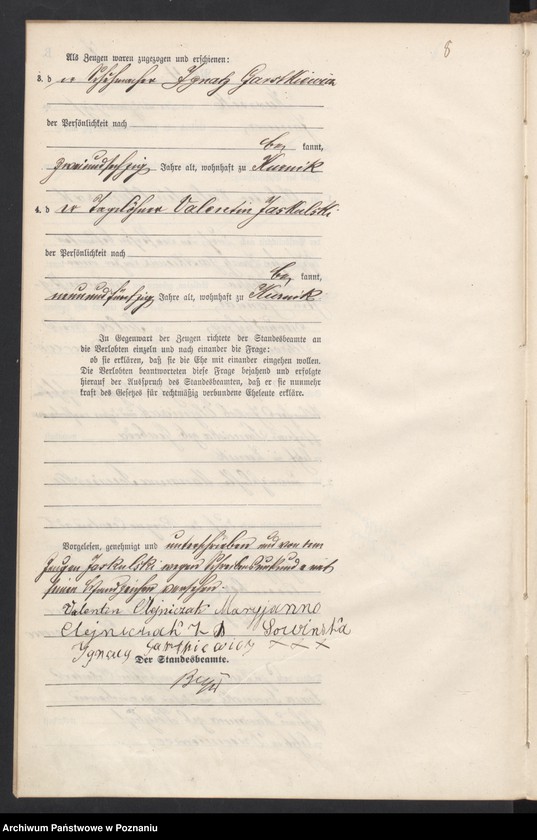 8
Als Zeugen waren zugezogen und erschienen:
3. der Schuhmacher Ignatz Garstkiewicz
der Persönlichkeit nach
be kannt,
zweiundsechzig Jahre alt, wohnhaft zu Kurnik
4. der Tagelöhner Valentin Jaskulski
der Persönlichkeit nach
be kannt,
neunundfünfzig Jahre alt, wohnhaft zu Kurnik
In Gegenwart der Zeugen richtete der Standesbeamte an
die Verlobten einzeln und nach einander die Frage:
ob sie erklären, daß sie die Ehe mit einander eingehen wollen.
Die Verlobten beantworteten diese Frage bejahend und erfolgte
hierauf der Ausspruch des Standesbeamten, daß er sie nunmehr
kraft des Gesetzes für rechtmäßig verbundene Eheleute erkläre.
Vorgelesen, genehmigt und unterschrieben und von dem
Zeugen Jaskulski wegen Schreibensunkunde mit
seinem Handzeichen versehen.
Valentin Olejniczak Maryjanna
Olejniczak Sowińska
Ignacy Garstkiewicz + + +
Der Standesbeamte.
Archiwum Państwowe w Poznaniu